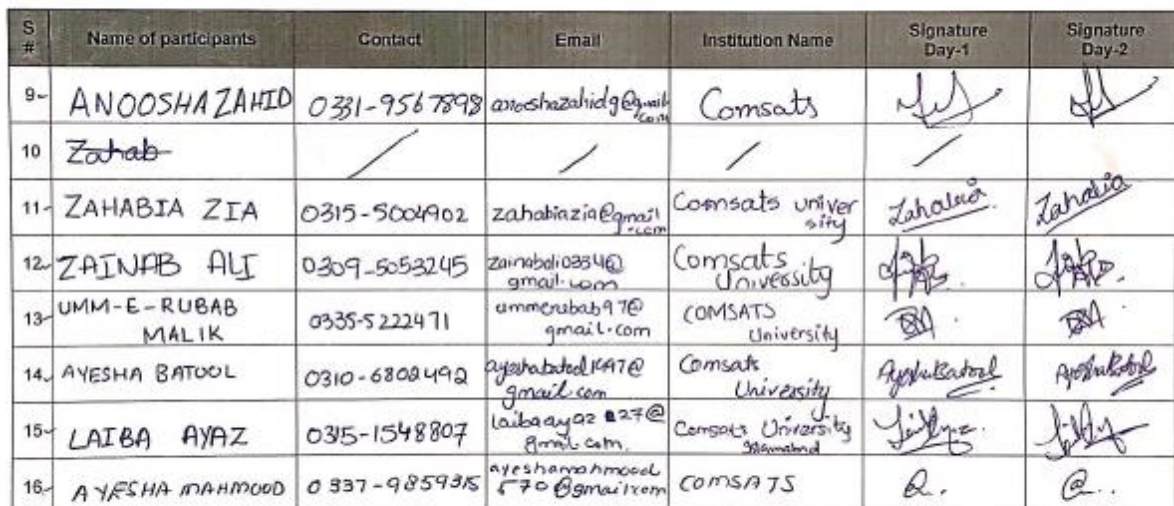 S # Name of participants Contact Email Institution Name Signature Day-1 Signature Day-2
9- ANOOSHA ZAHID 0331-9567898 anooshazahid9@gmail.com Comsats
10 Zahab / / / /
11- ZAHABIA ZIA 0315-5004902 zahabiazia@gmail.com Comsats university Zahabia Zahabia
12- ZAINAB ALI 0309-5053245 zainabali0334@gmail.com Comsats University
13- UMM-E-RUBAB MALIK 0335-5222471 ummerubab97@gmail.com COMSATS University
14- AYESHA BATOOL 0310-6802492 Comsats University AyeshaBatool AyeshaBatool
15- LAIBA AYAZ 0315-1548807 Comsats University Islamabad
16- AYESHA MAHMOOD 0337-9859315 ayeshamahmood570@gmail.com COMSATS